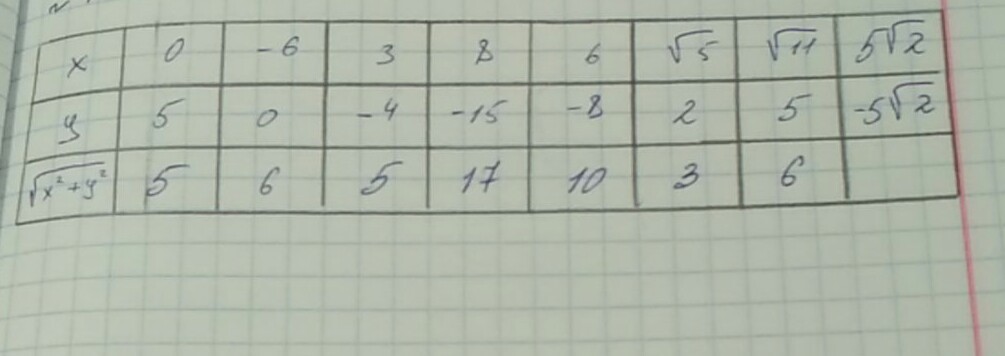 x 0 -6 3 8 6 √5 √11 5√2
y 5 0 -4 -15 -8 2 5 -5√2
√x²+y² 5 6 5 17 10 3 6